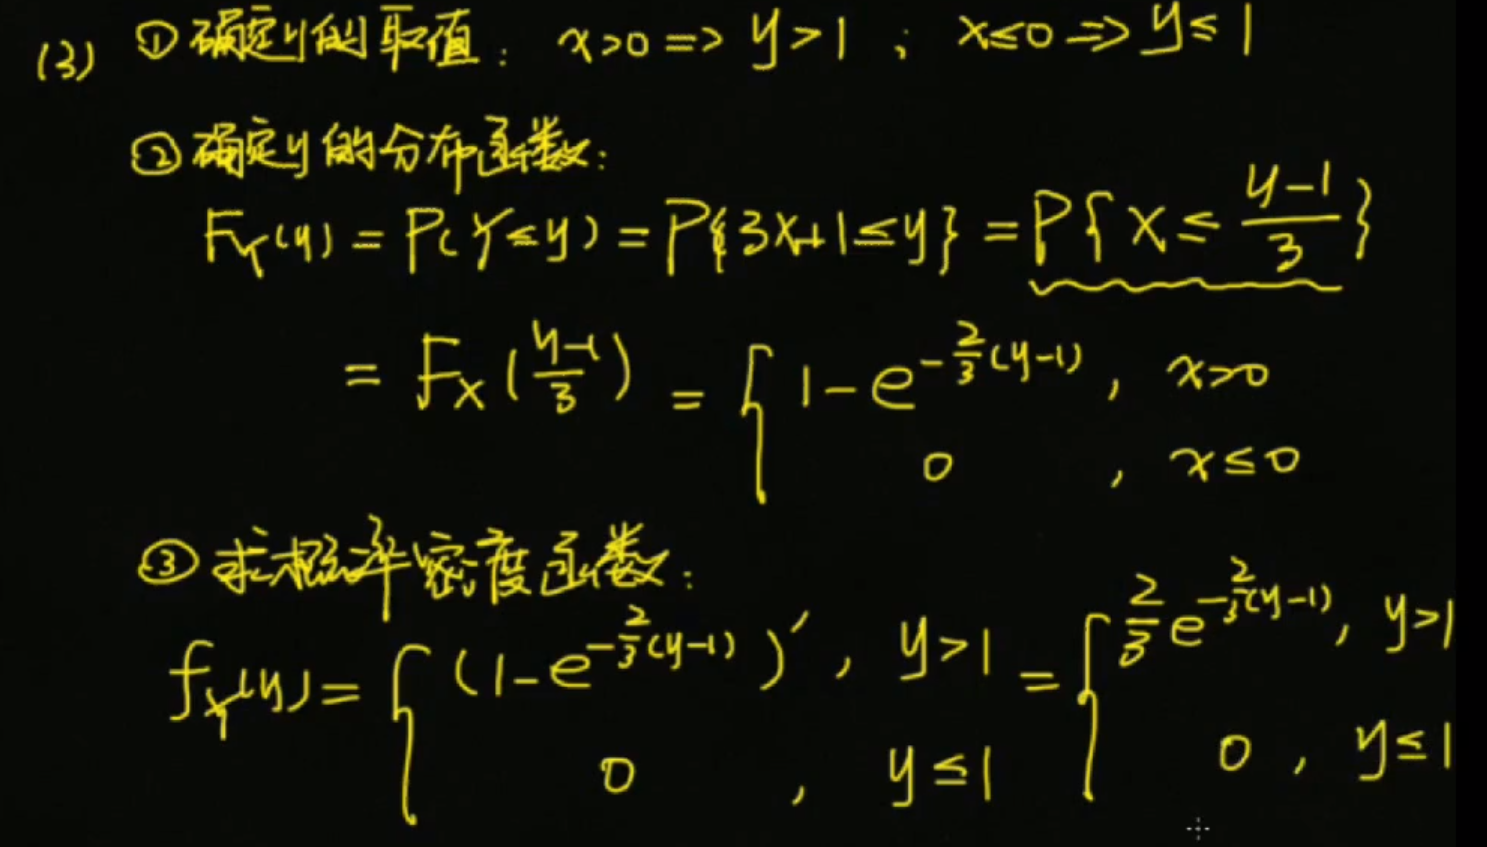 (3) ①确定y的取值: x>0 => y>1 ; x≤0 => y≤1
②确定y的分布函数:
F_Y(y) = P(Y≤y) = P{3X+1≤y} = P{X≤\frac{y-1}{3}}
= F_X(\frac{y-1}{3}) = { 1-e^{-\frac{2}{3}(y-1)}, x>0
0 , x≤0
③求概率密度函数:
f_Y(y) = { (1-e^{-\frac{2}{3}(y-1)})′, y>1 = { \frac{2}{3}e^{-\frac{2}{3}(y-1)}, y>1
0 , y≤1 0 , y≤1